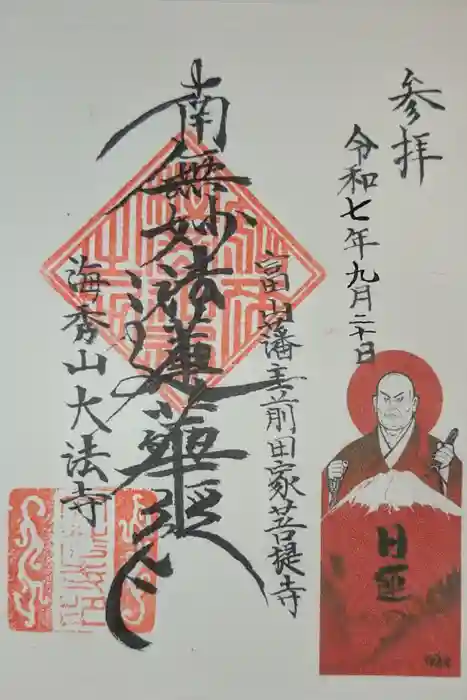 参拝
令和七年九月二十日
富山藩主前田家菩提寺
南無妙法蓮華経
海秀山大法寺
日蓮